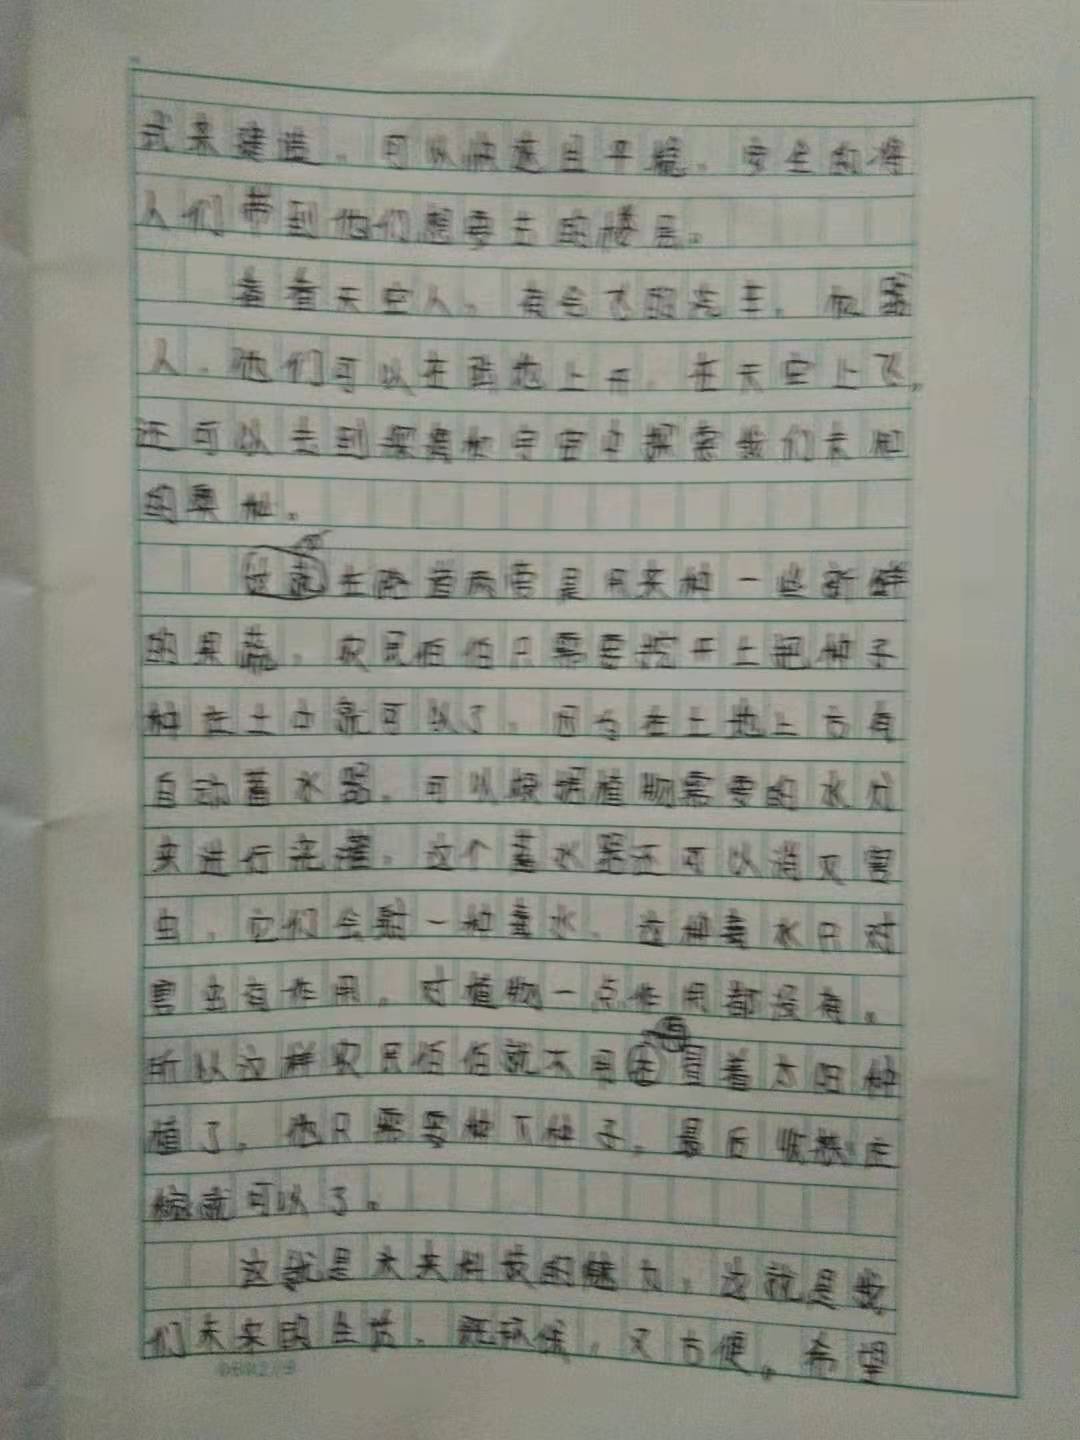 式来建造，可以快速且平稳，安全的将
人们带到他们想要去的楼层。
看看天空人，有会飞的汽车，机器
人，他们可以在陆地上开，在天空上飞，
还可以去到深海和宇宙中探索我们未知
的奥秘。
在隧道两旁是用来种一些新鲜
的果蔬，农民伯伯只需要挖开土把种子
种在土中就可以了，因为在土地上方有
自动蓄水器，可以根据植物需要的水位
来进行浇灌，这个蓄水器还可以消灭害
虫，它们会射一种毒水，这种毒水只对
害虫有作用，对植物一点作用都没有。
所以这样农民伯伯就不用冒着太阳种
植了，他只需要种下种子，最后收获庄
稼就可以了。
这就是未来科技的魅力，这就是我
们未来的生活，既环保，又方便。希望